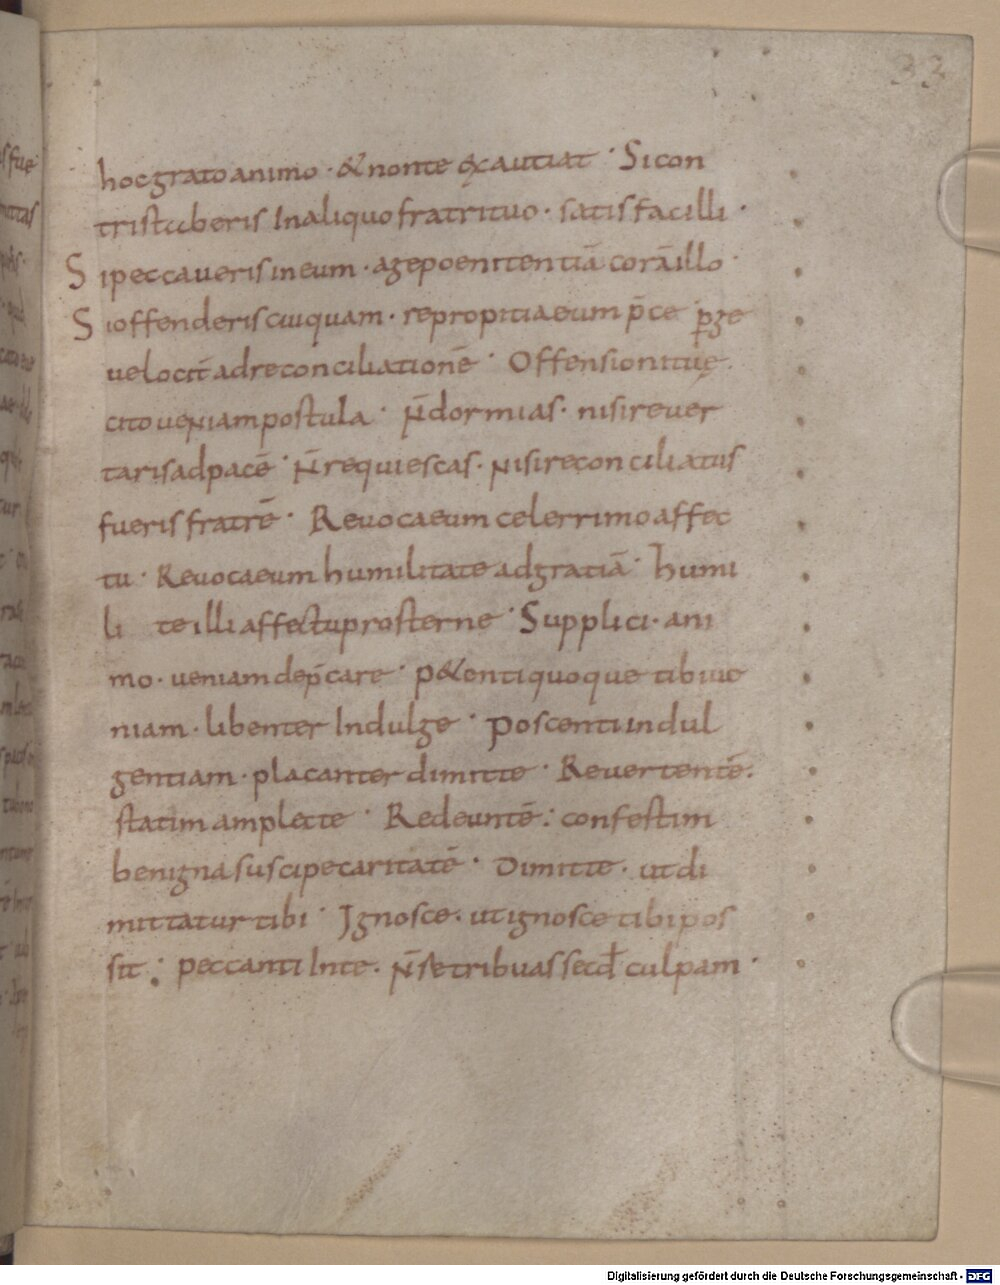 33
hocgratoanimo · & nonte excautiat · Sicon
tristaberis Inaliquofratrituo · satisfacilli ·
Sipeccaverisineum · agepoenitentiā corāillo ·
Sioffenderiscuiquam · repropitiaeum p̄ce p̱ge
velocit̄ adreconciliationē · Offensionituę ·
citoveniampostula · N̄dormias · nisirever
tarisadpacē · N̄requiescas · Nisireconciliatus
fuerisfratrē · Revocaeum celerrimoaffec
tu · Revocaeum humilitate adgratiā · humi
li te illi affectuprosterne · Supplici · ani
mo · veniamdep̄care · p&entiquoque tibi ve
niam · libenter Indulge · poscentiindul
gentiam · placanter dimitte · Revertentē ·
statim amplecte · Redeuntē : confestim
benignasuscipecaritatē · Dimitte · utdi
mittatur tibi · Ignosce · utignosce tibi pos
sit : peccanti Inte · N̄se tribuas secd̄ culpam ·
Digitalisierung gefördert durch die Deutsche Forschungsgemeinschaft - DFG